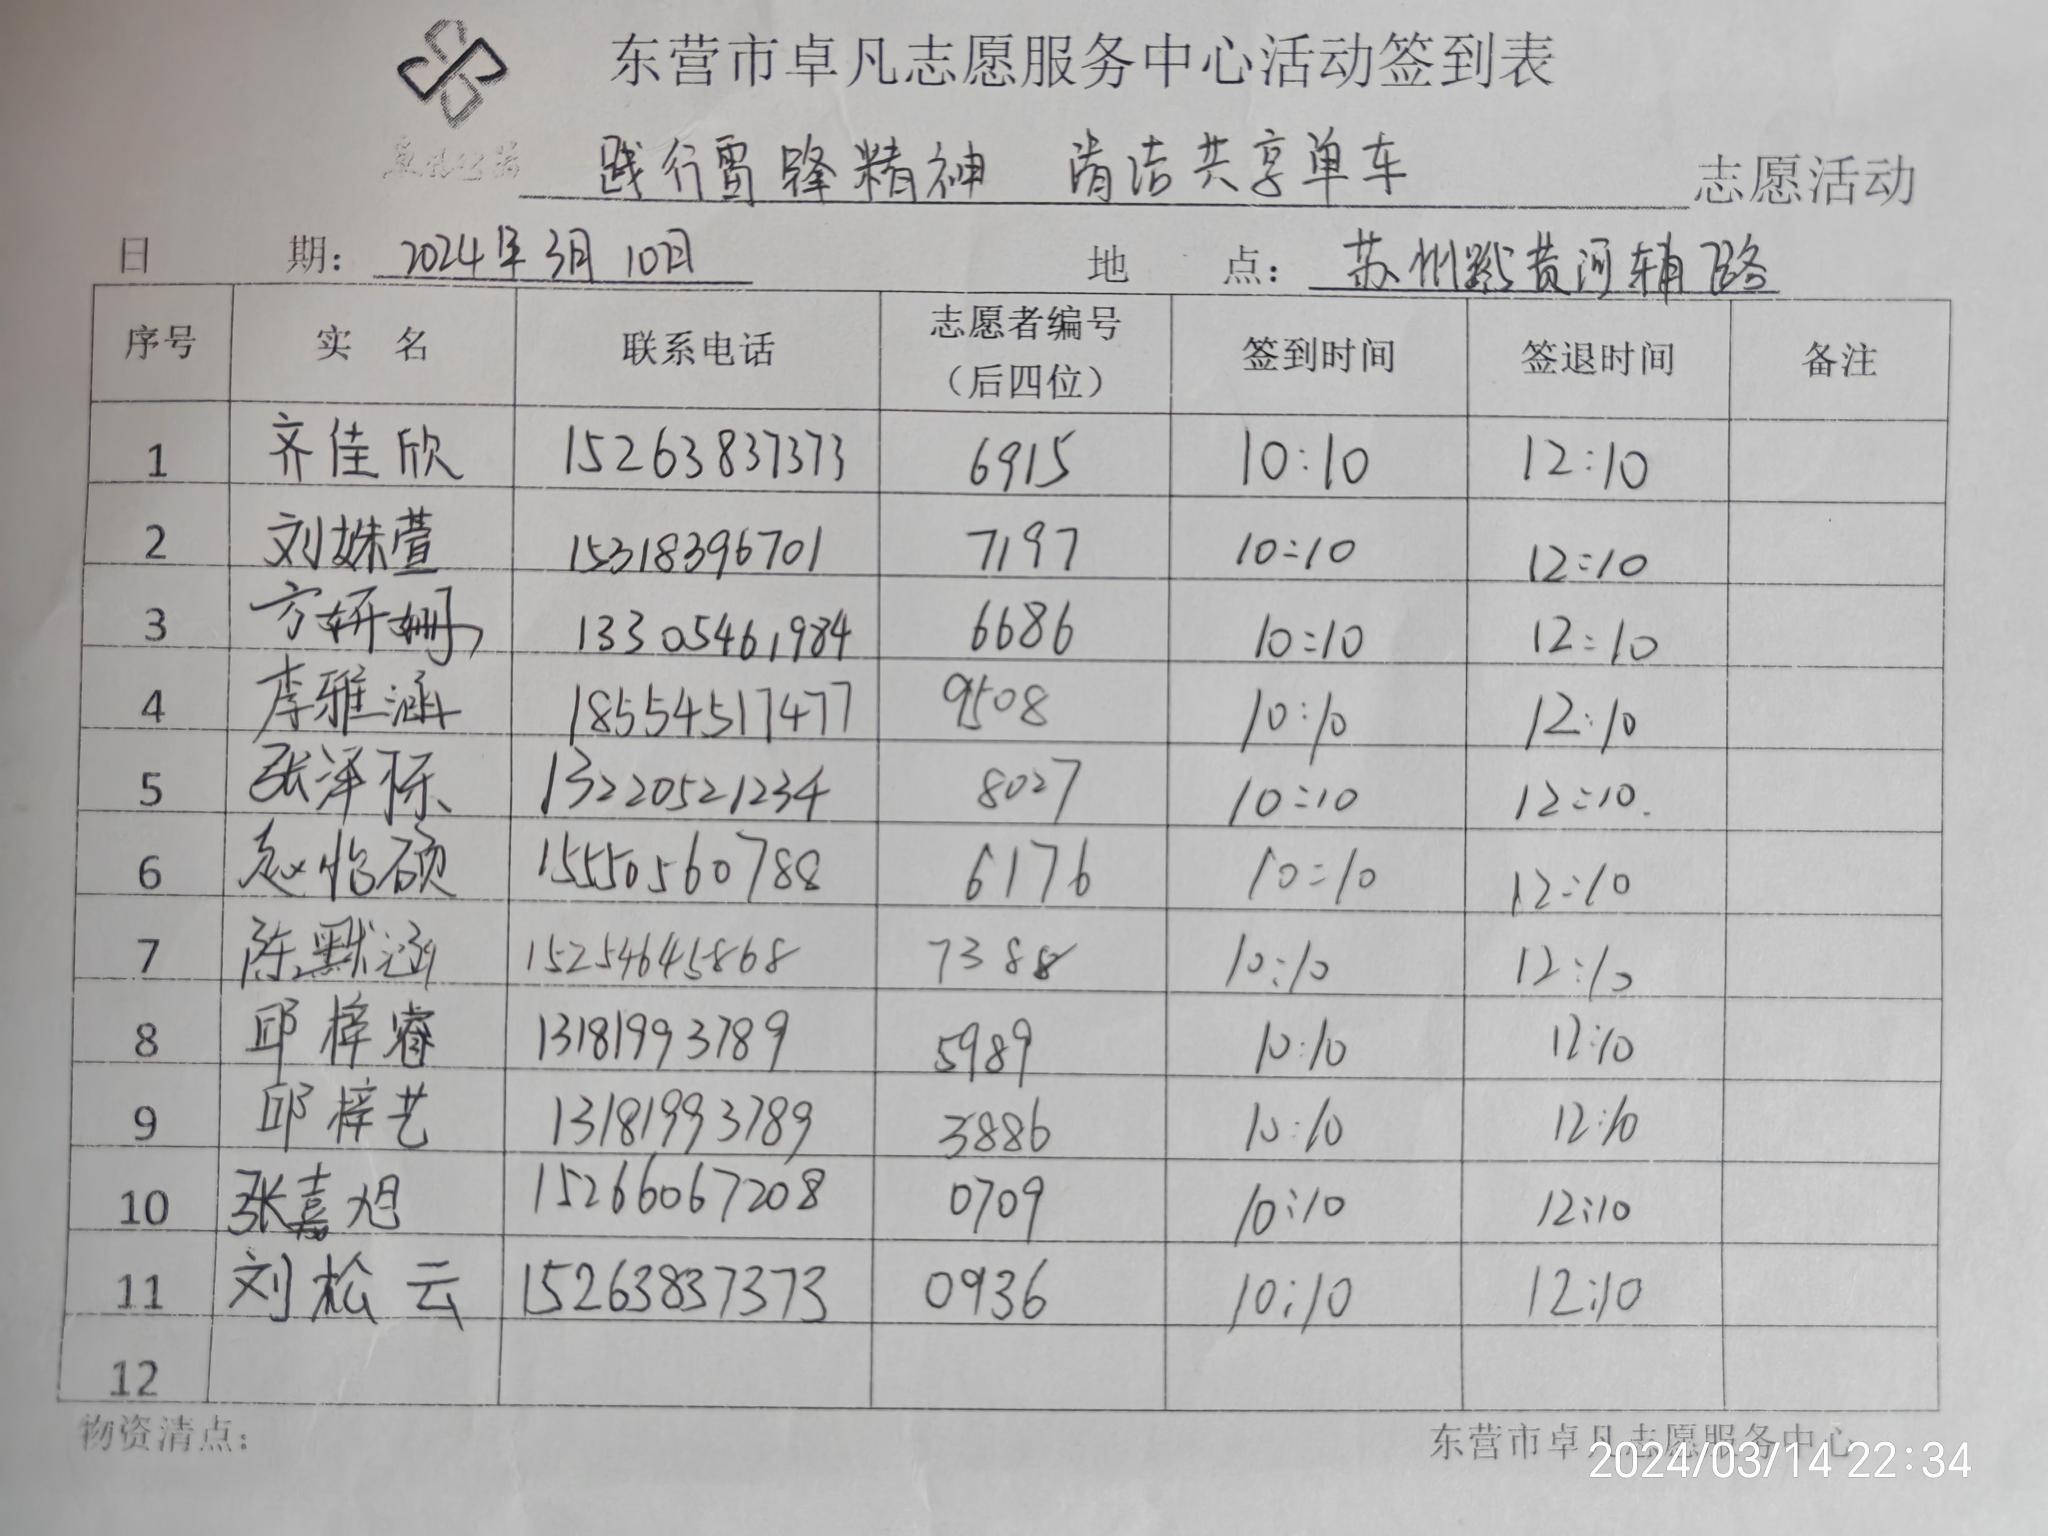 东营市卓凡志愿服务中心活动签到表
践行雷锋精神 清洁共享单车 志愿活动
日 期： 2024年3月10日 地 点： 苏州路黄河辅路
序号 实 名 联系电话 志愿者编号（后四位） 签到时间 签退时间 备注
1 齐佳欣 15263837373 6915 10:10 12:10
2 刘姝萱 15318396701 7197 10:10 12:10
3 方妍姗 13305461984 6686 10:10 12:10
4 李雅涵 18554517477 9508 10:10 12:10
5 张泽栎 13220521234 8027 10:10 12:10.
6 赵怡硕 15550560788 6176 10:10 12:10
7 陈默涵 15254645868 7388 10:10 12:10
8 邱梓睿 13181993789 5989 10:10 12:10
9 邱梓艺 13181993789 3886 10:10 12:10
10 张嘉旭 15266067208 0709 10:10 12:10
11 刘松云 15263837373 0936 10:10 12:10
12
物资清点： 东营市卓凡志愿服务中心
2024/03/14 22:34